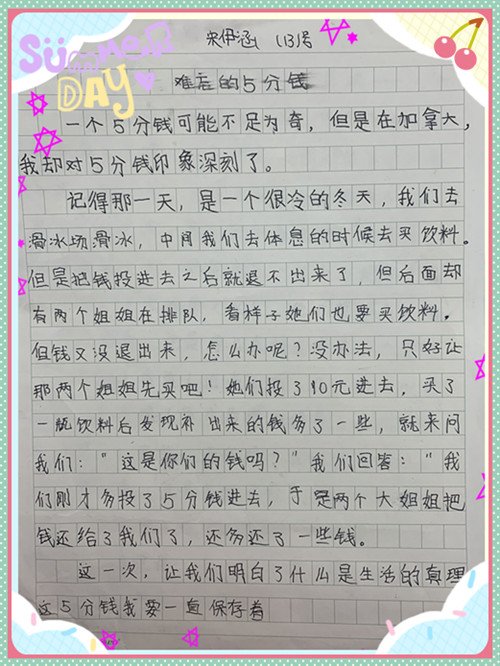 SUMMER
DAY
宋伊涵 (13)号
难忘的5分钱
一个5分钱可能不足为奇，但是在加拿大，
我却对5分钱印象深刻了。
记得那一天，是一个很冷的冬天，我们去
滑冰场滑冰，中间我们去体息的时候去买饮料。
但是把钱投进去之后就退不出来了，但后面却
有两个姐姐在排队，看样子她们也要买饮料。
但钱又没退出来，怎么办呢？没办法，只好让
那两个姐姐先买吧！她们投了10元进去，买了
一瓶饮料后发现补出来的钱多了一些，就来问
我们：“这是你们的钱吗？”我们回答：“我
们刚才多投了5分钱进去，于是两个大姐姐把
钱还给了我们了，还多还了一些钱。
这一次，让我们明白了什么是生活的真理
这5分钱我要一直保存着